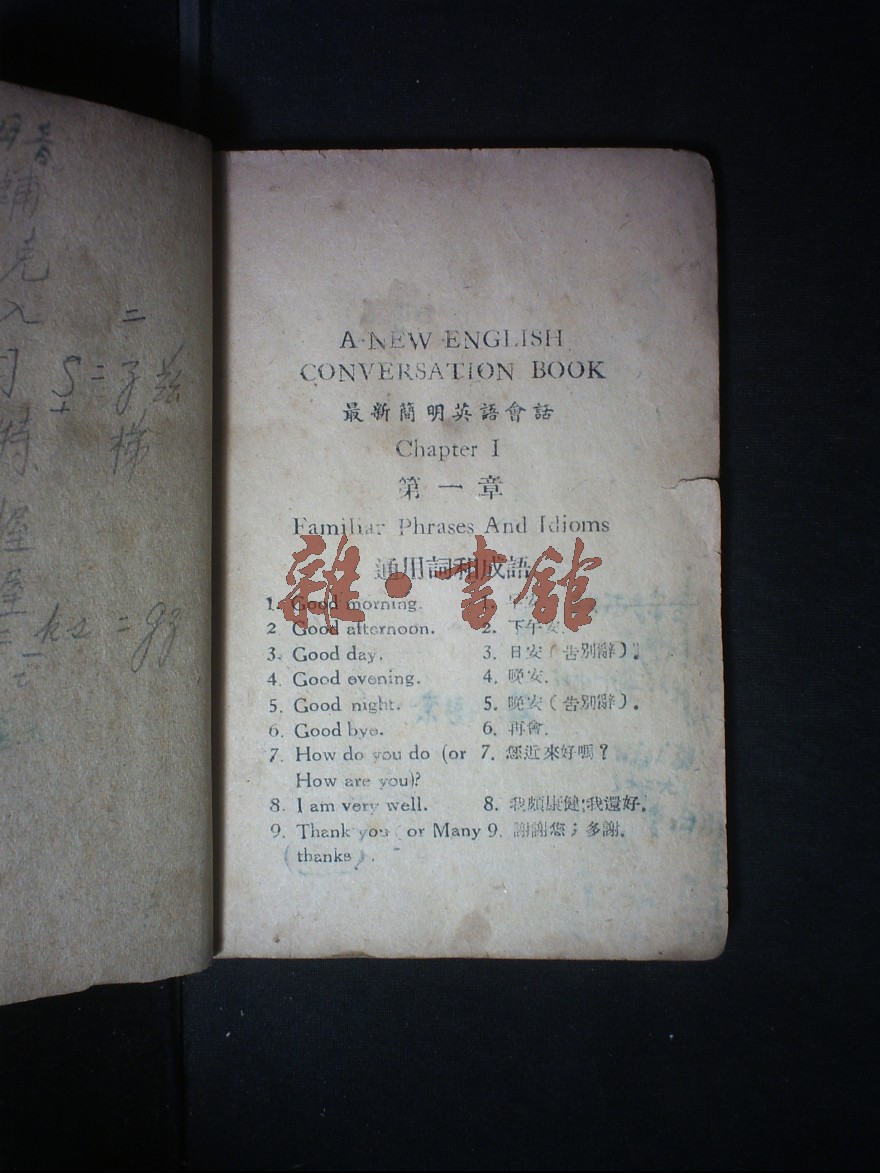 母音
補
克
入 二
司 S = 子 兹
特 梯
握
屋
= ks = gz
A NEW ENGLISH
CONVERSATION BOOK
最新簡明英語會話
Chapter I
第一章
Familiar Phrases And Idioms
通用詞和成語
雜·書館
1. Good morning. 1. 早安.
2. Good afternoon. 2. 下午安.
3. Good day. 3. 日安(告別辭)。
4. Good evening. 4. 晚安.
5. Good night. 5. 晚安(告別辭)。
6. Good bye. 6. 再會.
7. How do you do (or 7. 您近來好嗎?
How are you)?
8. I am very well. 8. 我頗康健;我還好。
9. Thank you (or Many 9. 謝謝您;多謝.
thanks).